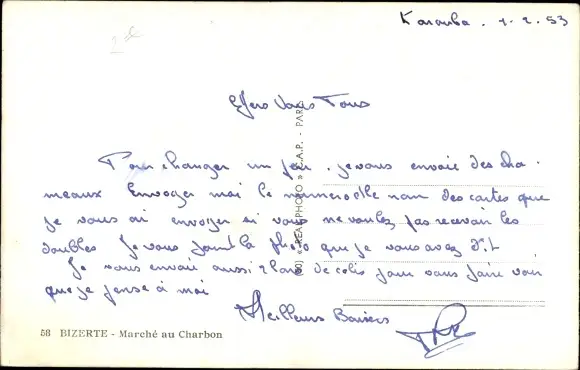 Karouba. 1-2.53
Chers Vous Tous
Pour changer un peu. je vous envoie des cha-
meaux Envoyer moi le numero et le nom des cartes que
je vous ai envoyer si vous ne voulez pas recevoir les
doubles Je vous joint la photo que je vous avez dit
Je vous envoie aussi 2 bons de colis pour vous faire voir
que je pense à moi
Meilleurs Baisers
58 BIZERTE - Marché au Charbon
« REAL-PHOTO » C.A.P. - PARIS